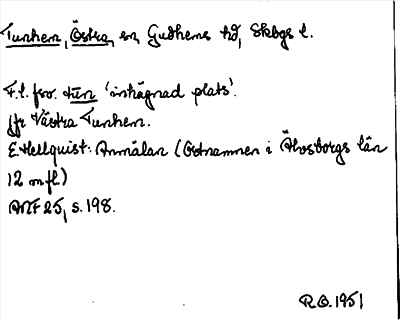 Tunhem, Östra, sn, Gudhems hd, Skbgs l.
F.l. fsv. tūn 'inhägnad plats'.
Jfr Västra Tunhem.
E. Hellquist: Anmälan (Ortnamnen i Älvsborgs län
12 m fl)
ANF 25, s. 198.
R.O. 1951